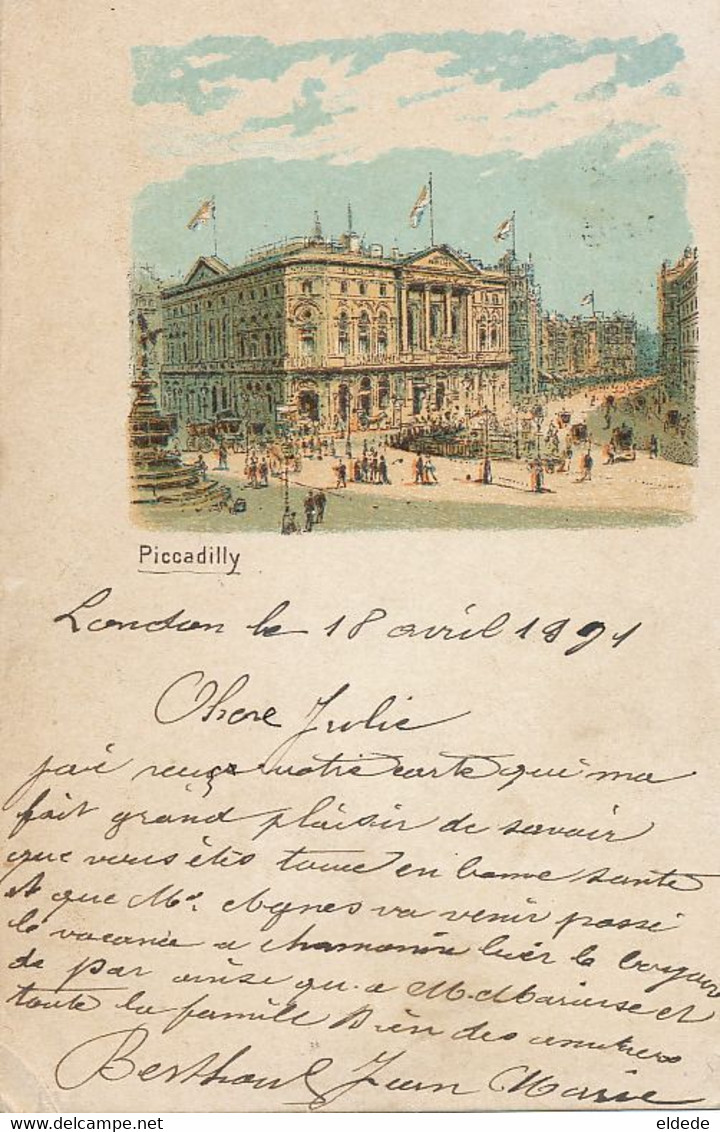 Piccadilly
London le 18 avril 1891
Chere Julie
jai reçu votre carte qui ma
fait grand plaisir de savoir
que vous étés toute en bonne santé
et que Mr Agnes va venir passé
le vacance a chamonix
de par ainse qu a M. Mariuse et
toute la famille Bien des
Berthoud Jean Marie
eldede
www.delcampe.net